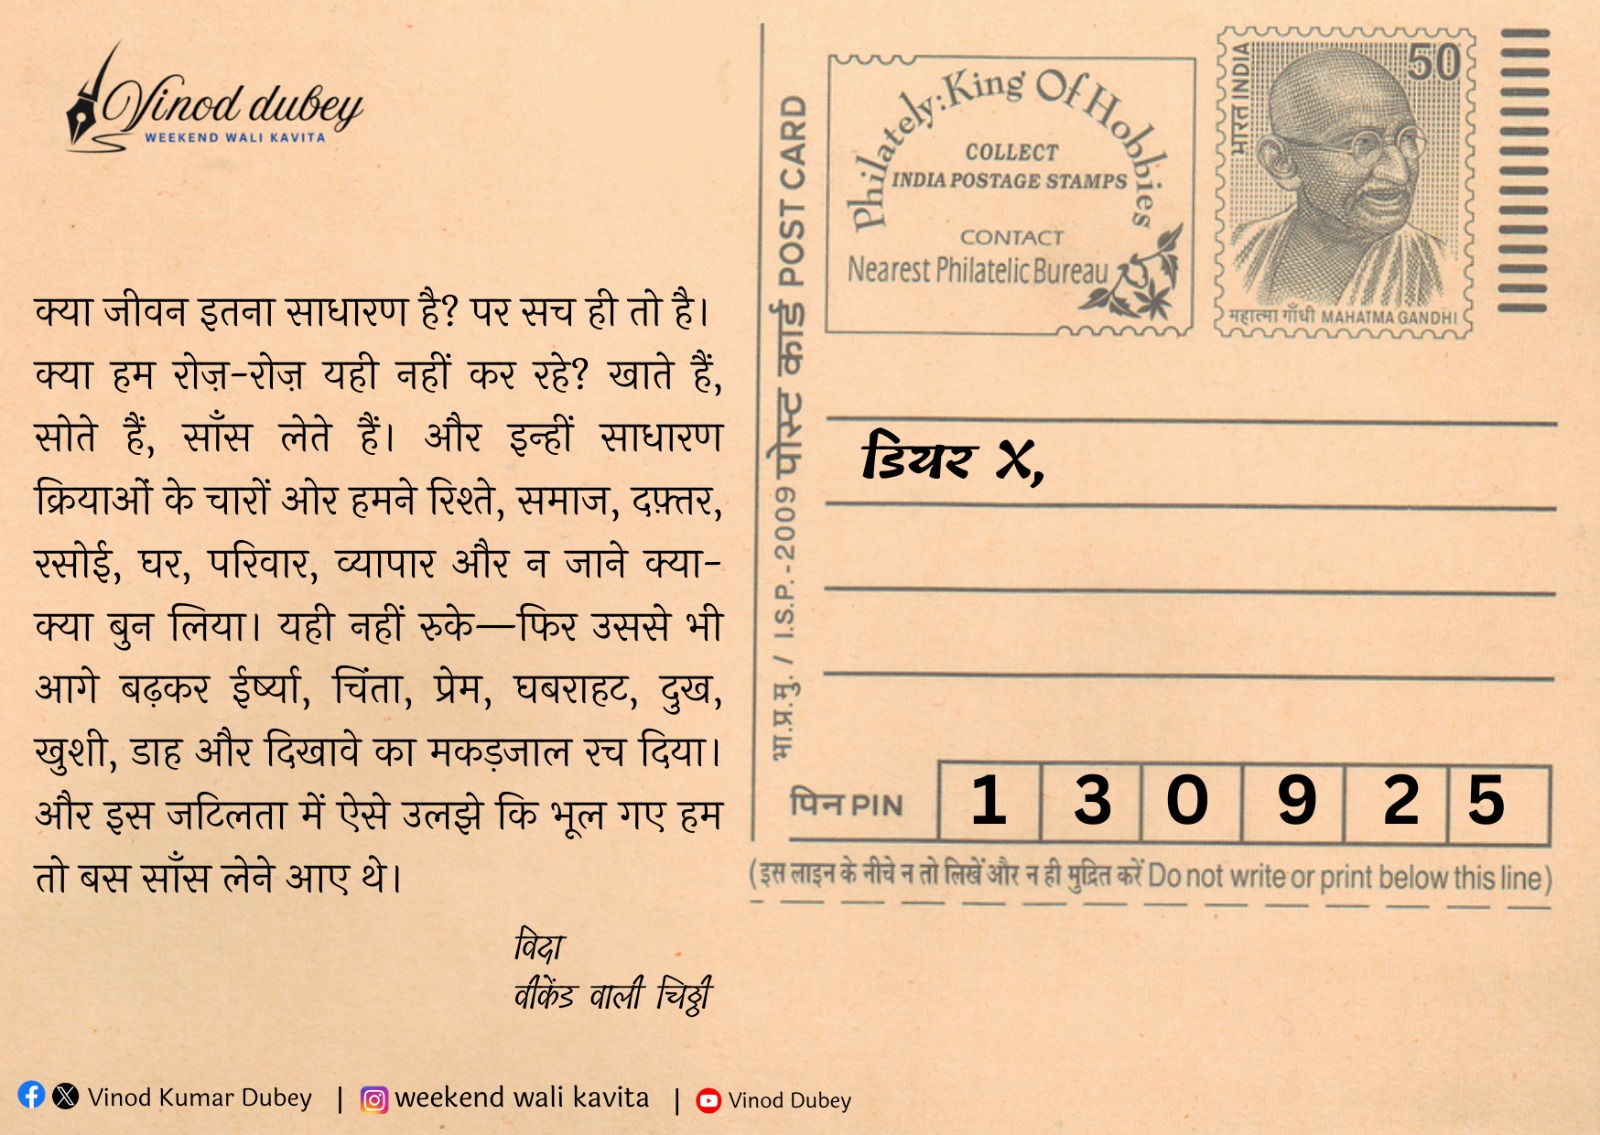 Vinod dubey
WEEKEND WALI KAVITA
क्या जीवन इतना साधारण है? पर सच ही तो है।
क्या हम रोज़-रोज़ यही नहीं कर रहे? खाते हैं,
सोते हैं, साँस लेते हैं। और इन्हीं साधारण
क्रियाओं के चारों ओर हमने रिश्ते, समाज, दफ़्तर,
रसोई, घर, परिवार, व्यापार और न जाने क्या-
क्या बुन लिया। यही नहीं रुके—फिर उससे भी
आगे बढ़कर ईर्ष्या, चिंता, प्रेम, घबराहट, दुख,
खुशी, डाह और दिखावे का मकड़जाल रच दिया।
और इस जटिलता में ऐसे उलझे कि भूल गए हम
तो बस साँस लेने आए थे।
विदा
वीकेंड वाली चिठ्ठी
भा.प्र.मु. / I.S.P.-2009 पोस्ट कार्ड POST CARD
Philately: King Of Hobbies
COLLECT
INDIA POSTAGE STAMPS
CONTACT
Nearest Philatelic Bureau
भारत INDIA
50
महात्मा गाँधी MAHATMA GANDHI
डियर X,
पिन PIN 1 3 0 9 2 5
(इस लाइन के नीचे न तो लिखें और न ही मुद्रित करें Do not write or print below this line)
Vinod Kumar Dubey | weekend wali kavita | Vinod Dubey